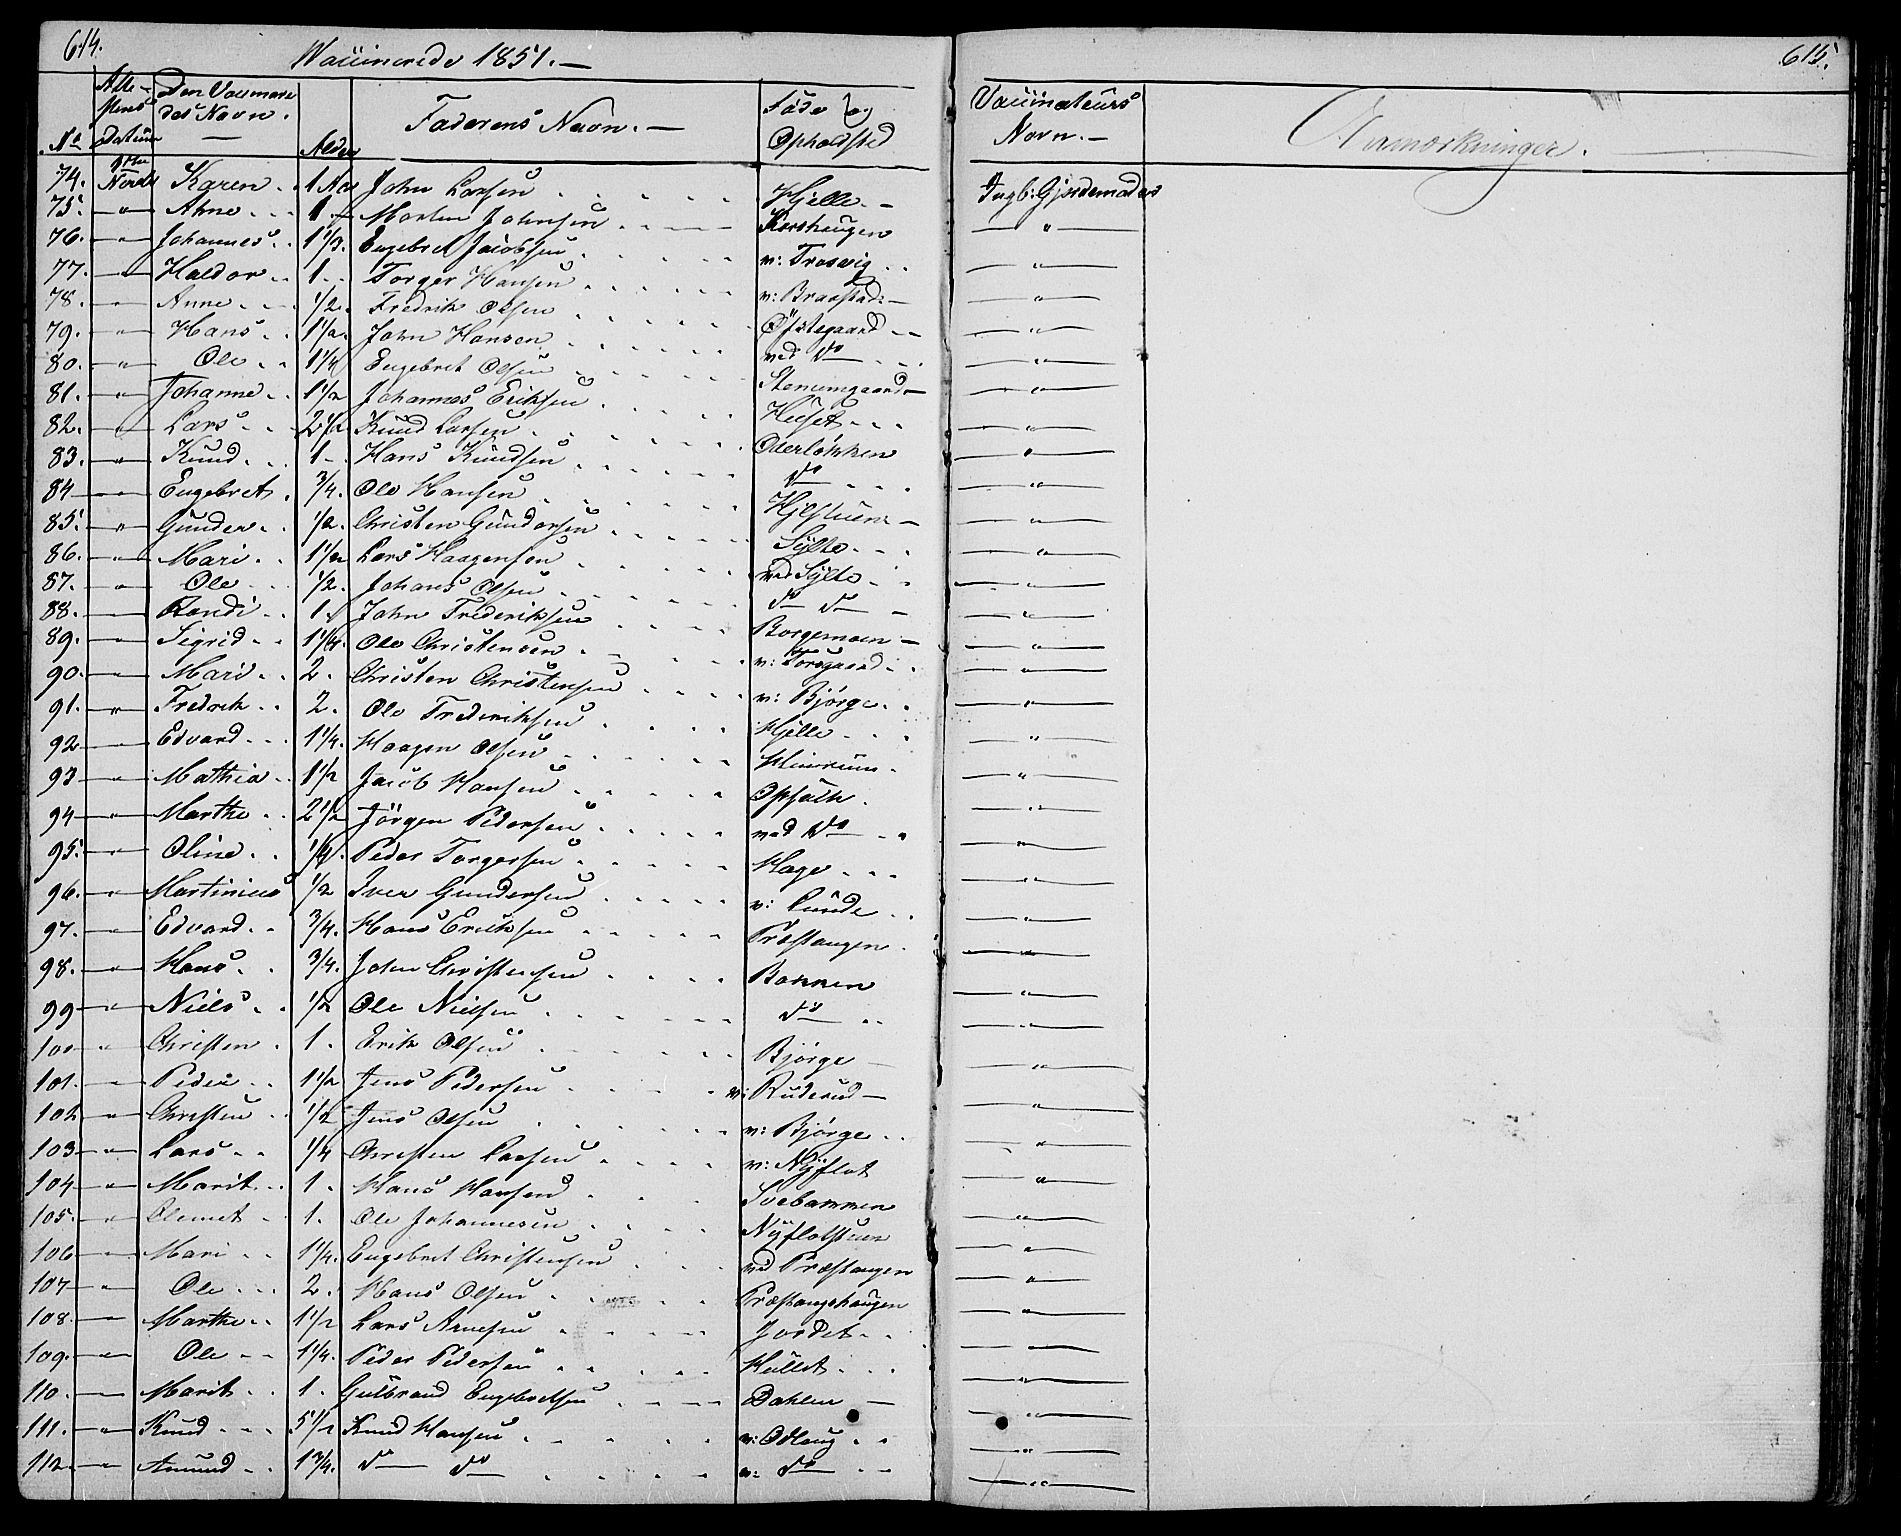 614.
Vaccinerede 1851. —
615.
Atte- stens datum
Den Vaccinere des Navn.
No
Alder
Faderens Navn. —
Føde og Opholdsted
Vaccinateurs Navn. —
Anmærkninger.
74. Karen 1 Aar John Larsen Hjelle — Ingb: Gjordemoders
75. — " — Ahne 1 — Morten Johnsen Korshaugen — " —
76. — " — Johannes 1 1/3. Engebret Jacobsen v: Trosvig — " —
77. — " — Haldor 1 Torger Hansen v: Braastad — " —
78. — " — Anne 1/2. Fredrik Olsen Øfstegaard — " —
79. — " — Hans 1 1/2. John Hansen ved Do — " —
80. — " — Ole 1 1/4 Engebret Olsen Stenumgaard — " —
81. — " — Johanne 1 1/2 Johannes Eriksen — " —
82. — " — Lars 2 1/2 Knud Larsen Oderløkken — " —
83. — " — Knud 1 — Hans Knudsen Do — " —
84 — " — Engebret 3/4. Ole Hansen — " —
85. — " — Gunder 1/2. Christen Gundersen Sylte — " —
86. — " — Mari 1 1/2 Lars Haagensen ved Sylte — " —
87. — " — Ole 1/2. Johans Olsen Do Do — " —
88. — " — Randi 1. John Frederiksen Borgemoen — " —
89. — " — Sigrid 1 1/4. Ole Christensen v: — " —
90. — " — Mari 2. Christen Christensen v: Bjørge — " —
91. — " — Fredrik 2. Ole Frederiksen Hjelle — " —
92 — " — Edvard 1 1/4. Haagen Olsen — " —
93 — " — Mathia 1 1/2 Jacob Hansen — " —
94 — " — Marthe 2 1/2 Jörgen Pedersen ved Do — " —
95. — " — Oline 1/4. Peder Torgersen Hage — " —
96. — " — Martinius 1/2 Iver Gundersen v: Lunde — " —
97. — " — Edvard 3/4. Hans Eriksen Præstangen — " —
98. — " — Hans 3/4. John Christensen Bakken — " —
99 — " — Niels 1/2 Ole Nielsen Do — " —
100 — " — Christen 1. Erik Olsen Bjørge — " —
101. — " — Peder 1 1/2 Jens Pedersen v: Ruderud — " —
102 — " — Christen 1/2 Jens Olsen v: Bjørge — " —
103 — " — Lars 1/4 Christen Larsen v: Nyflot — " —
104 — " — Marit 1. Hans Hansen Svebakken — " —
105. — " — Olemet 1. Ole Johannesen Nyflotstuen — " —
106 — " — Mari 1 1/4. Engebret Christensen ved Præstangen — " —
107 — " — Ole 2. Hans Olsen Præstangshaugen — " —
108. — " — Marthe 1 1/2 Lars Arnesen Jordet — " —
109. — " — Ole 1 1/4. Peder Pedersen — " —
110. — " — Marit 1. Gulbrand Engebretsen Dahlen — " —
111. — " — Knud 5 1/2 Knud Hansen v: Odlaug — " —
112. — " — Amund 1 3/4. Do Do v: Do — " —